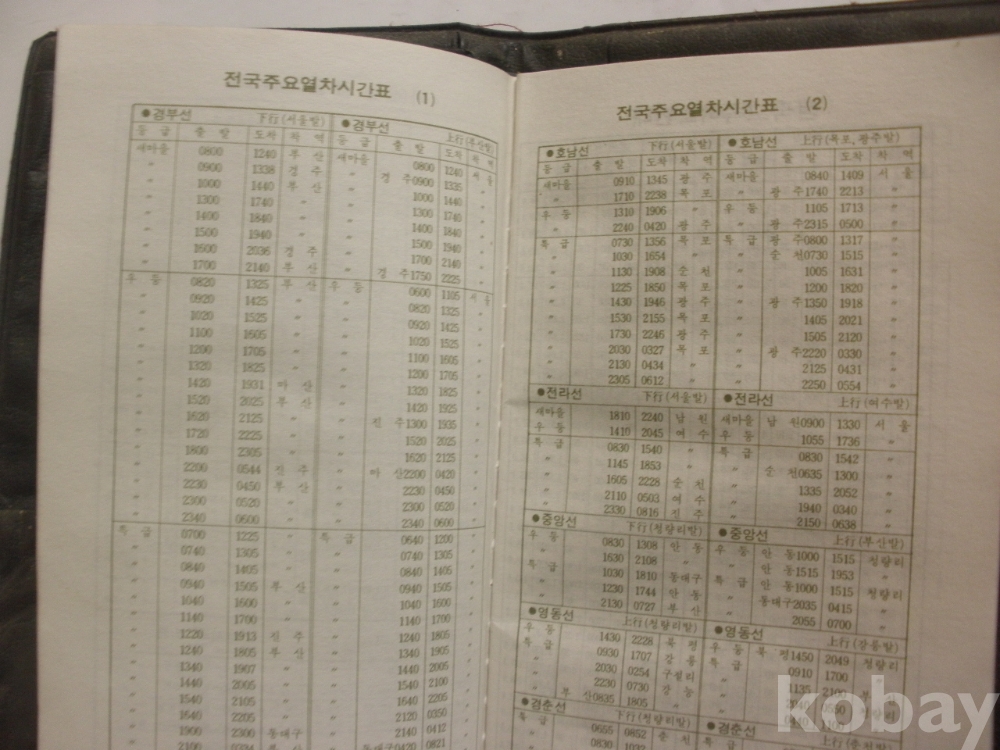 전국주요열차시간표 (1)
●경부선 下行(서울발) ●경부선 上行(부산발)
등 급 출 발 도착 착 역 등 급 출 발 도착 착 역
새마을 0800 1240 부 산 새마을 0800 1240 서 울
〃 0900 1338 경 주 〃 경 주0900 1335 〃
〃 1000 1440 부 산 〃 1000 1440 〃
〃 1300 1740 〃 〃 1300 1740 〃
〃 1400 1840 〃 〃 1400 1840 〃
〃 1500 1940 〃 〃 1500 1940 〃
〃 1600 2036 경 주 〃 1700 2140 〃
〃 1700 2140 부 산 〃 경 주1750 2225 〃
우 등 0820 1325 부 산 우 등 0600 1105 서 울
〃 0920 1425 〃 〃 0820 1325 〃
〃 1020 1525 〃 〃 0920 1425 〃
〃 1100 1605 〃 〃 1020 1525 〃
〃 1200 1705 〃 〃 1100 1605 〃
〃 1320 1825 〃 〃 1200 1705 〃
〃 1420 1931 마 산 〃 1320 1825 〃
〃 1520 2025 부 산 〃 1420 1925 〃
〃 1620 2125 〃 〃 진 주1300 1935 〃
〃 1720 2225 〃 〃 1520 2025 〃
〃 1800 2305 〃 〃 1620 2125 〃
〃 2200 0544 진 주 〃 마 산2200 0420 〃
〃 2230 0450 부 산 〃 2230 0450 〃
〃 2300 0520 〃 〃 2300 0520 〃
〃 2340 0600 〃 〃 2340 0600 〃
특 급 0700 1225 〃 특 급 0640 1200 〃
〃 0740 1305 〃 〃 0740 1305 〃
〃 0840 1405 〃 〃 0840 1405 〃
〃 0940 1505 부 산 〃 0940 1505 〃
〃 1040 1600 〃 〃 1040 1600 〃
〃 1140 1700 〃 〃 1140 1700 〃
〃 1220 1913 진 주 〃 1240 1805 〃
〃 1240 1805 부 산 〃 1340 1905 〃
〃 1340 1907 〃 〃 1440 2005 〃
〃 1440 2005 〃 〃 1540 2100 〃
〃 1540 2105 〃 〃 1640 2205 〃
〃 1640 2205 〃 〃 2120 0350 〃
〃 1900 2300 동대구 〃 2140 0412 〃
〃 2100 0334 부 산 〃 동대구0420 0821 〃
전국주요열차시간표 (2)
●호남선 下行(서울발) ●호남선 上行(목포, 광주발)
등 급 출 발 도착 착 역 등 급 출 발 도착 착 역
새마을 0910 1345 광 주 새마을 0840 1409 서 울
〃 1710 2238 목 포 〃 광 주1740 2213 〃
우 등 1310 1906 〃 우 등 1105 1713 〃
〃 2240 0420 광 주 〃 광 주2315 0500 〃
특 급 0730 1356 목 포 특 급 광 주0800 1317 〃
〃 1030 1654 〃 〃 순 천0730 1515 〃
〃 1130 1908 순 천 〃 1005 1631 〃
〃 1225 1850 목 포 〃 1200 1820 〃
〃 1430 1946 광 주 〃 광 주1350 1918 〃
〃 1530 2155 목 포 〃 1405 2021 〃
〃 1730 2246 광 주 〃 1505 2120 〃
〃 2030 0327 목 포 〃 광 주2220 0330 〃
〃 2130 0434 〃 〃 2125 0431 〃
〃 2305 0612 〃 〃 2250 0554 〃
●전라선 下行(서울발) ●전라선 上行(여수발)
새마을 1810 2240 남 원 새마을 남 원0900 1330 서 울
우 등 1410 2045 여 수 우 등 1055 1736 〃
특 급 0830 1540 〃 특 급 0830 1542 〃
〃 1145 1853 〃 〃 순 천0635 1300 〃
〃 1605 2228 순 천 〃 1335 2052 〃
〃 2110 0503 여 수 〃 1940 0340 〃
〃 2330 0816 진 주 〃 2150 0638 〃
●중앙선 下行(청량리발) ●중앙선 上行(부산발)
우 등 0830 1308 안 동 우 등 안 동1000 1515 청량리
〃 1630 2108 〃 〃 안 동1515 1953 〃
특 급 1030 1810 동대구 특 급 안 동1000 1515 청량리
〃 1230 1744 안 동 〃 동대구2035 0415 〃
〃 2130 0727 부 산 〃 2055 0700 〃
●영동선 上行(청량리발) ●영동선 上行(강릉발)
우 등 1430 2228 북 평 우 등 북 평1450 2049 청량리
특 급 0930 1707 강 릉 특 급 0910 1700 〃
〃 2030 0254 구절리 〃 1135 2100 부 산
〃 2230 0730 강 릉
〃 부 산0835 1805 〃
●경춘선 下行(청량리발) ●경춘선
특 급 0655 0852 춘 천 특 급
〃 0830
kobay